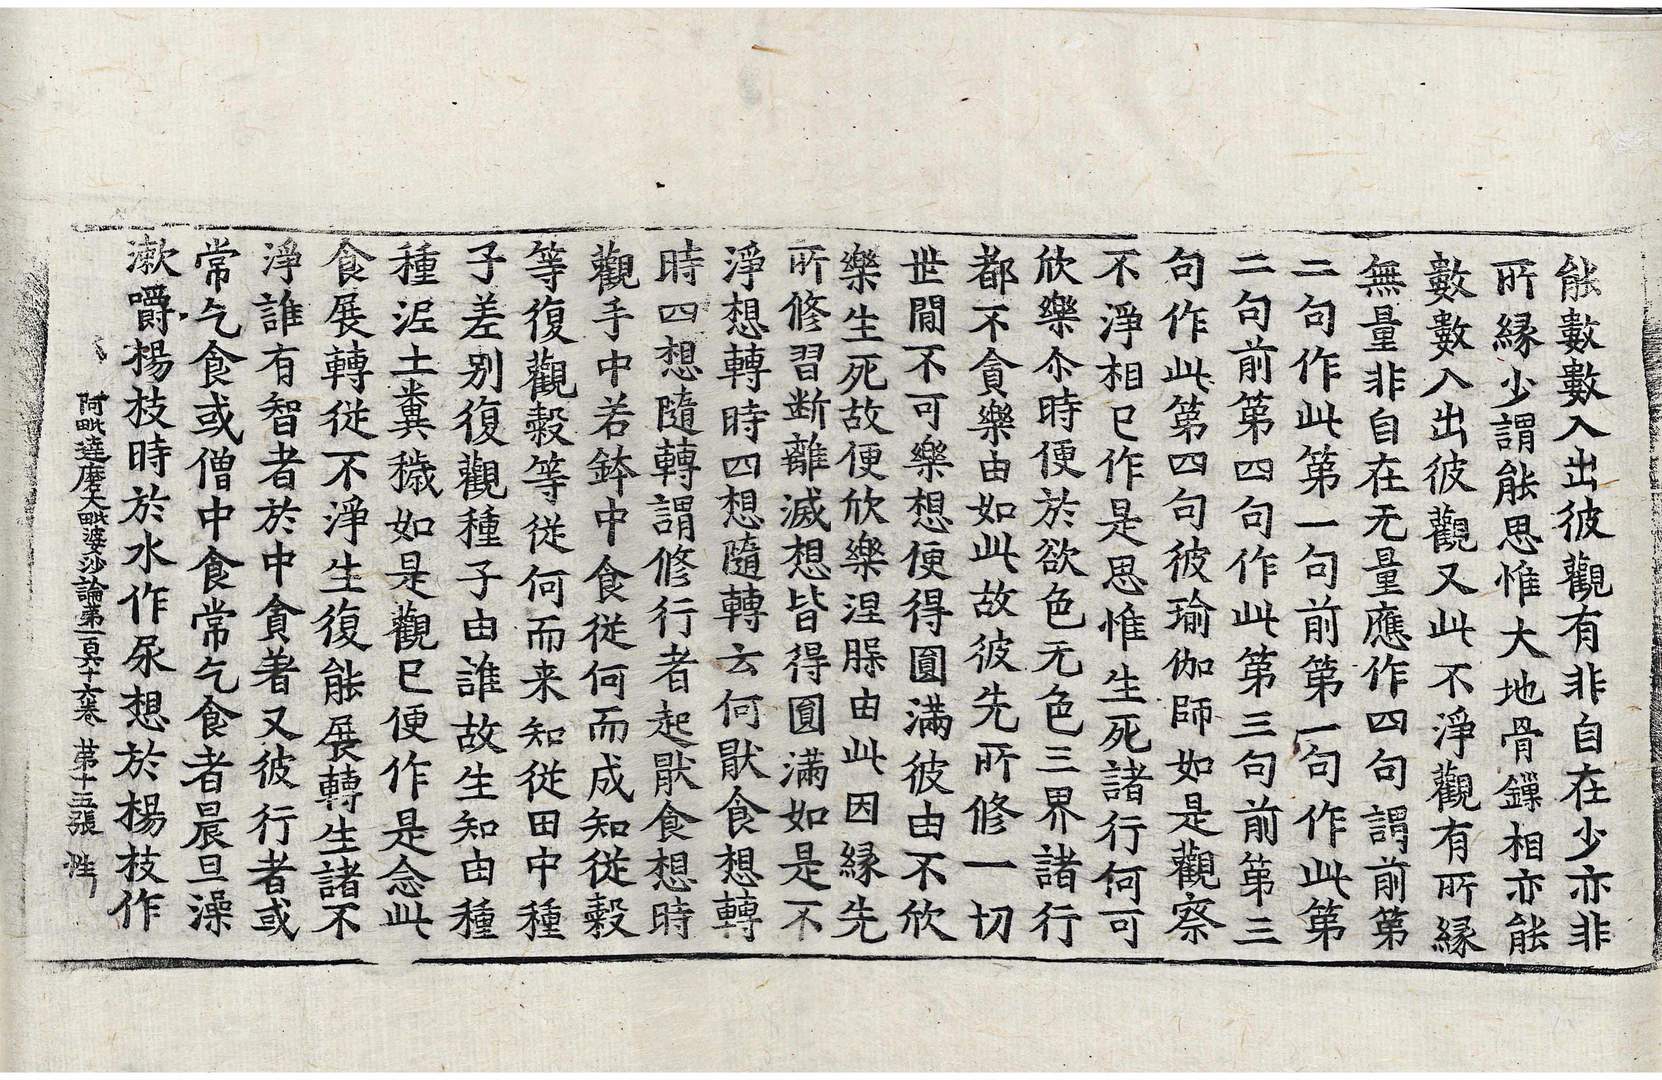 能數數入出彼觀有非自在少亦非
所縁少謂能思惟大地骨鏁相亦能
數數入出彼觀又此不淨觀有所縁
無量非自在无量應作四句謂前第
二句作此第一句前第一句作此第
二句前第四句作此第三句前第三
句作此第四句彼瑜伽師如是觀察
不淨相已作是思惟生死諸行何可
欣樂尒時便於欲色无色三界諸行
都不貪樂由如此故彼先所修一切
世間不可樂想便得圓滿彼由不欣
樂生死故便欣樂涅槃由此因縁先
所修習斷離滅想皆得圓滿如是不
淨想轉時四想隨轉云何猒食想轉
時四想隨轉謂修行者起猒食想時
觀手中若鉢中食從何而成知從穀
等復觀穀等從何而来知從田中種
子差別復觀種子由誰故生知由種
種泥土糞穢如是觀已便作是念此
食展轉從不淨生復能展轉生諸不
淨誰有智者於中貪著又彼行者或
常乞食或僧中食常乞食者晨旦澡
漱嚼楊枝時於水作尿想於楊枝作
阿毗達磨大毗婆沙論第一百六十六卷 第十五張 性